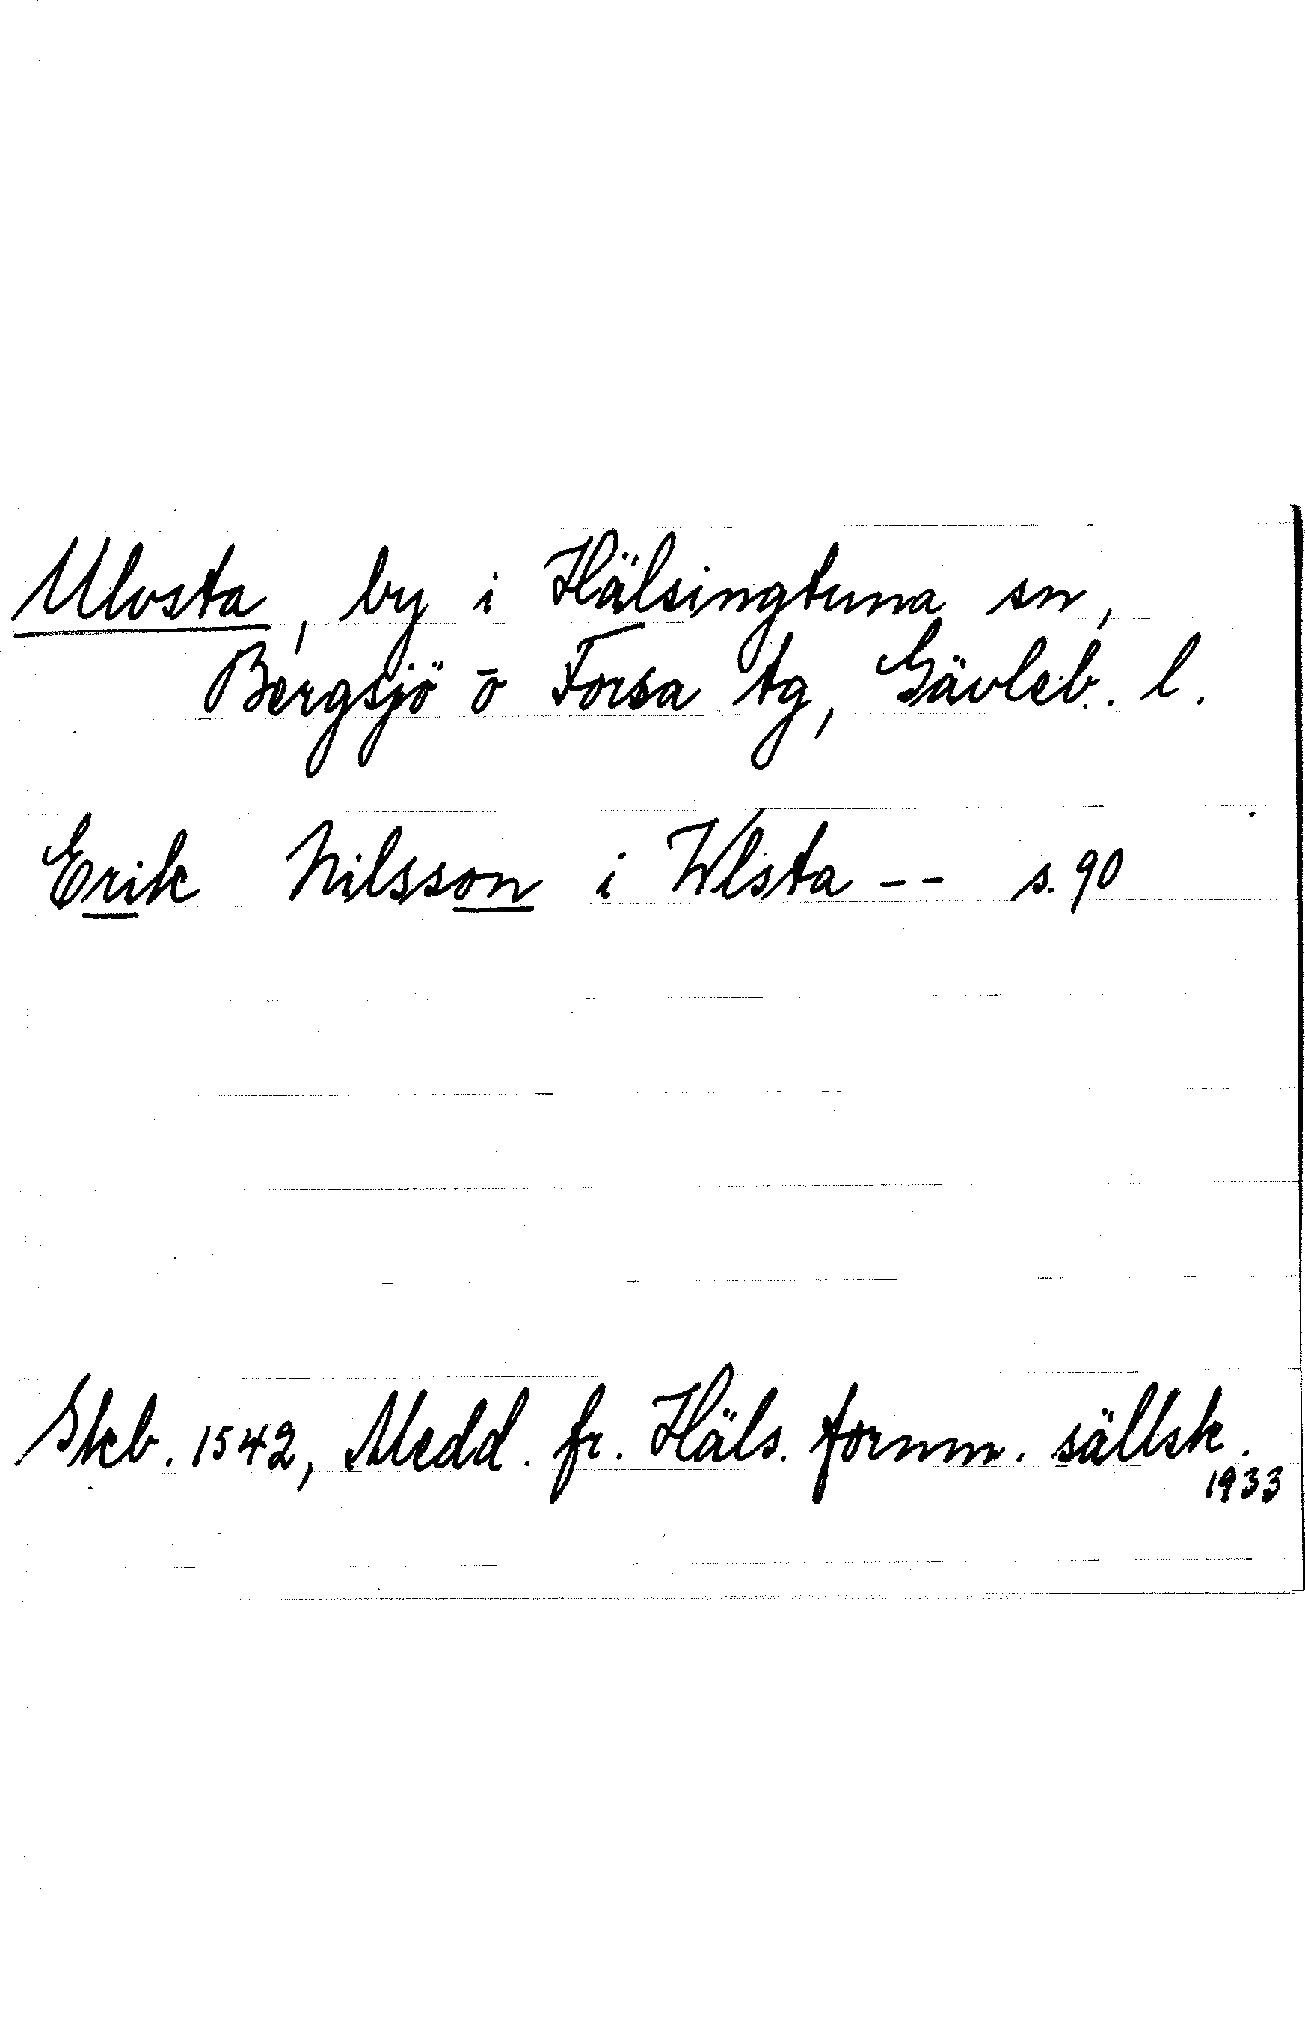 Ulvsta, by i Hälsingtuna sn,
Bergsjö o Forsa tg, Gävleb. l.
Erik Nilsson i Wlsta -- s. 90
Skb. 1542, Medd. fr. Häls. fornm. sällsk.
1933